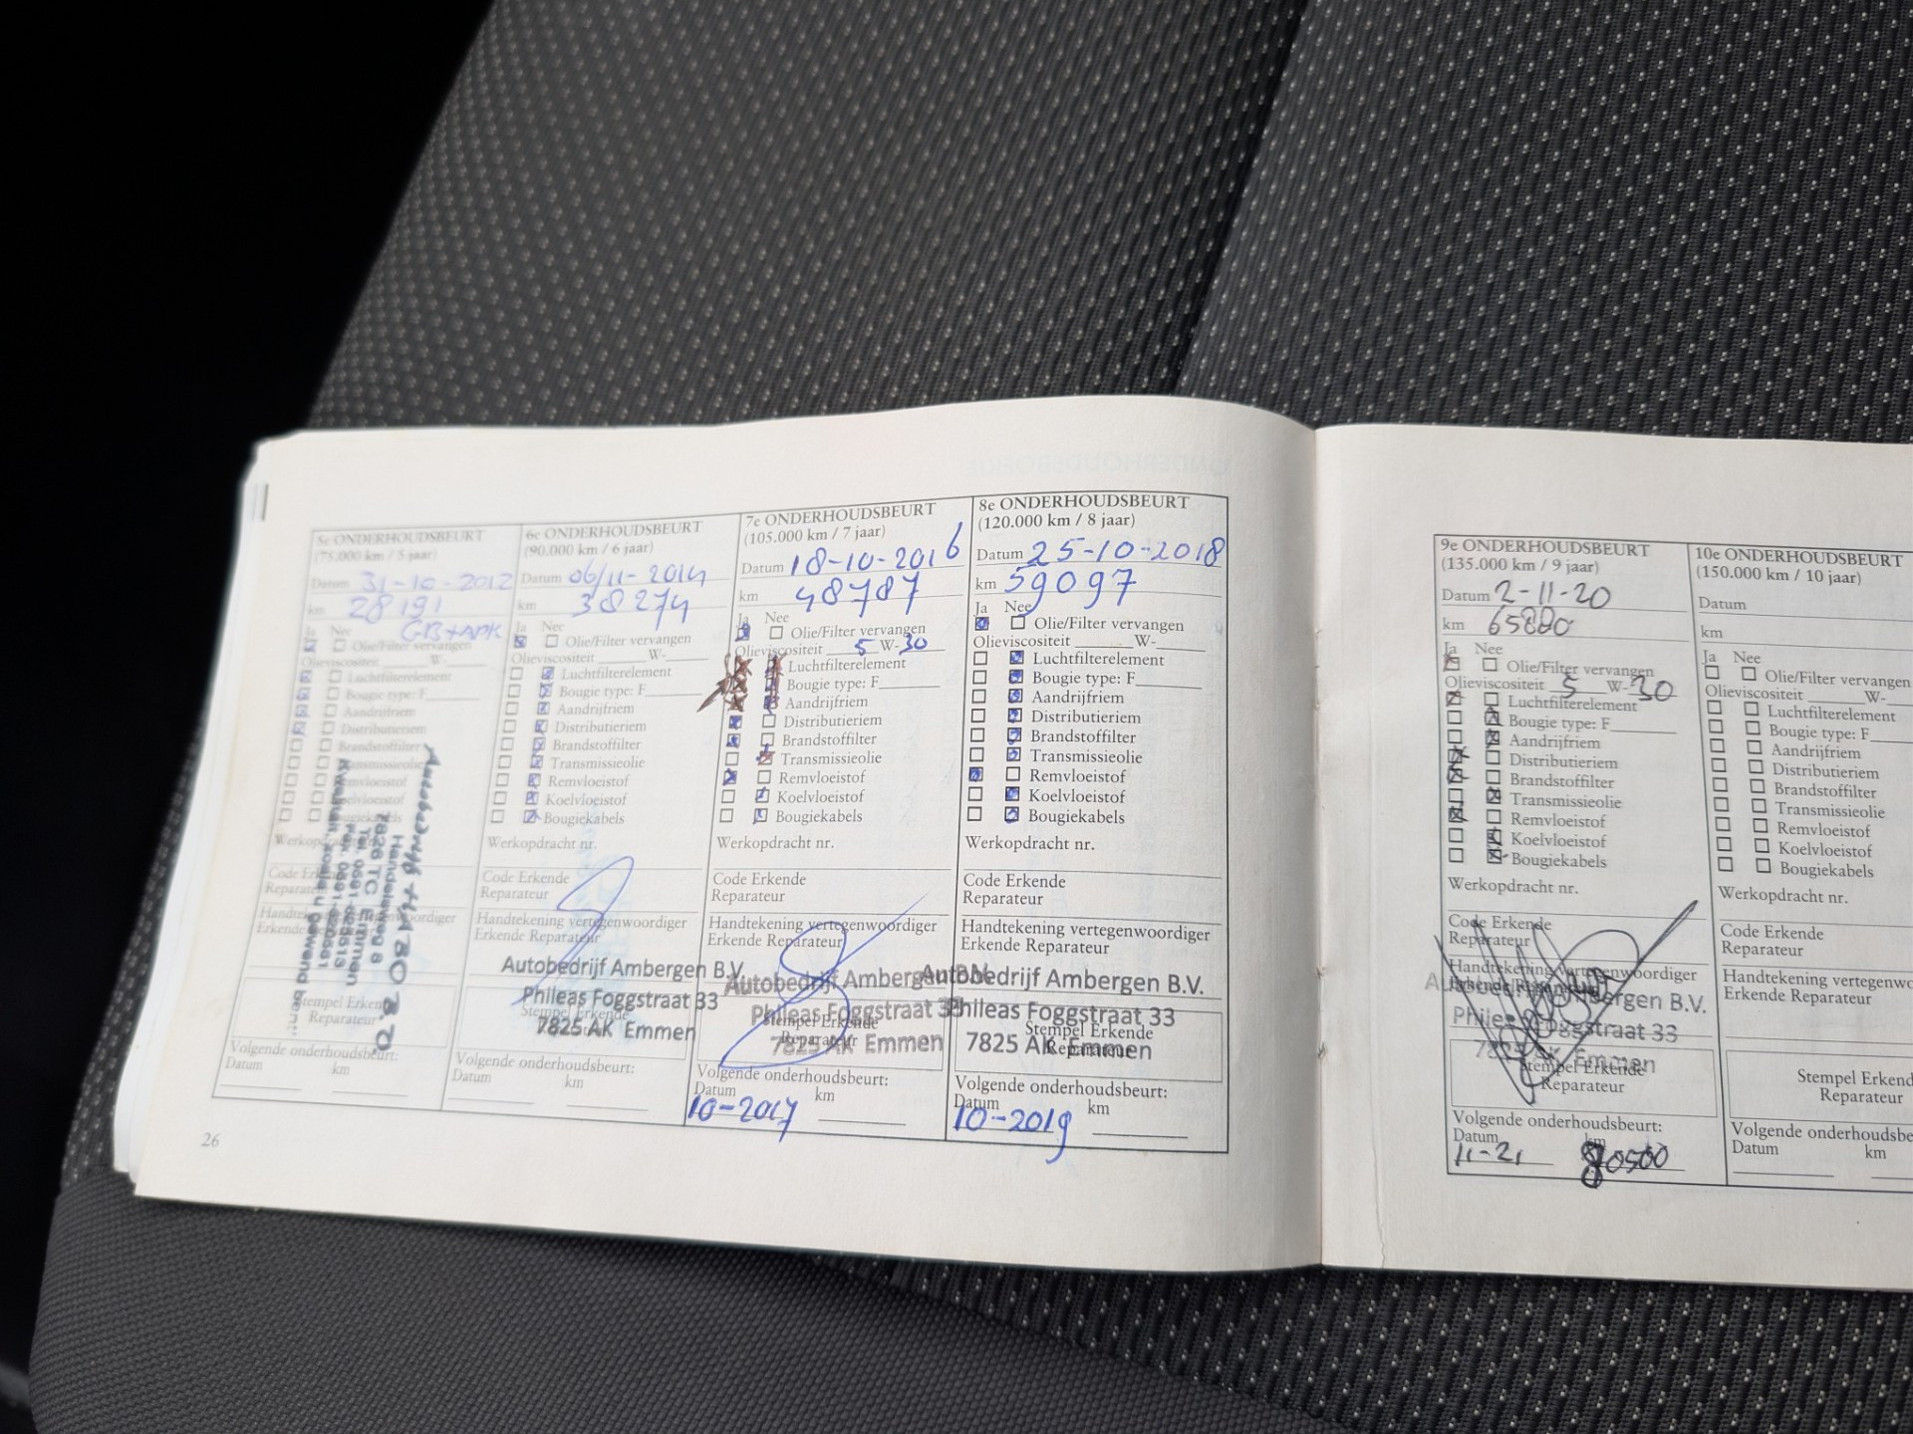 5e ONDERHOUDSBEURT
(75.000 km / 5 jaar)
Datum 31-10-2012
km 28191
GB+APK
Ja Nee
Olie/Filter vervangen
Olieviscositeit W-
Luchtfilterelement
Bougie type: F
Aandrijfriem
Distributieriem
Brandstoffilter
Transmissieolie
Remvloeistof
Koelvloeistof
Bougiekabels
Werkopdracht
Code Erkende
Reparateur
Handtekening vertegenwoordiger
Erkende Reparateur
Handelsweg 8
7826 TC Emmen
Stempel Erkende
Reparateur
Volgende onderhoudsbeurt:
Datum km
6e ONDERHOUDSBEURT
(90.000 km / 6 jaar)
Datum 06/11-2014
km 38274
Ja Nee
Olie/Filter vervangen
Olieviscositeit W-
Luchtfilterelement
Bougie type: F
Aandrijfriem
Distributieriem
Brandstoffilter
Transmissieolie
Remvloeistof
Koelvloeistof
Bougiekabels
Werkopdracht nr.
Code Erkende
Reparateur
Handtekening vertegenwoordiger
Erkende Reparateur
Autobedrijf Ambergen B.V.
Phileas Foggstraat 33
Stempel Erkende
7825 AK Emmen
Volgende onderhoudsbeurt:
Datum km
7e ONDERHOUDSBEURT
(105.000 km / 7 jaar)
Datum 18-10-2016
km 48787
Ja Nee
Olie/Filter vervangen
Olieviscositeit 5 W-30
Luchtfilterelement
Bougie type: F
Aandrijfriem
Distributieriem
Brandstoffilter
Transmissieolie
Remvloeistof
Koelvloeistof
Bougiekabels
Werkopdracht nr.
Code Erkende
Reparateur
Handtekening vertegenwoordiger
Erkende Reparateur
Autobedrijf Ambergen B.V.
Phileas Foggstraat 33
Stempel Erkende
Reparateur
7825 AK Emmen
Volgende onderhoudsbeurt:
Datum km
10-2017
8e ONDERHOUDSBEURT
(120.000 km / 8 jaar)
Datum 25-10-2018
km 59097
Ja Nee
Olie/Filter vervangen
Olieviscositeit W-
Luchtfilterelement
Bougie type: F
Aandrijfriem
Distributieriem
Brandstoffilter
Transmissieolie
Remvloeistof
Koelvloeistof
Bougiekabels
Werkopdracht nr.
Code Erkende
Reparateur
Handtekening vertegenwoordiger
Erkende Reparateur
Autobedrijf Ambergen B.V.
Phileas Foggstraat 33
Stempel Erkende
7825 AK Emmen
Reparateur
Volgende onderhoudsbeurt:
Datum km
10-2019
26
9e ONDERHOUDSBEURT
(135.000 km / 9 jaar)
Datum 2-11-20
km 65880
Ja Nee
Olie/Filter vervangen
Olieviscositeit 5 W-30
Luchtfilterelement
Bougie type: F
Aandrijfriem
Distributieriem
Brandstoffilter
Transmissieolie
Remvloeistof
Koelvloeistof
Bougiekabels
Werkopdracht nr.
Code Erkende
Reparateur
Handtekening vertegenwoordiger
Erkende Reparateur
Autobedrijf Ambergen B.V.
Phileas Foggstraat 33
7825 AK Emmen
Stempel Erkende
Reparateur
Volgende onderhoudsbeurt:
Datum km
11-21 80500
10e ONDERHOUDSBEURT
(150.000 km / 10 jaar)
Datum
km
Ja Nee
Olie/Filter vervangen
Olieviscositeit W-
Luchtfilterelement
Bougie type: F
Aandrijfriem
Distributieriem
Brandstoffilter
Transmissieolie
Remvloeistof
Koelvloeistof
Bougiekabels
Werkopdracht nr.
Code Erkende
Reparateur
Handtekening vertegenwo
Erkende Reparateur
Stempel Erkend
Reparateur
Volgende onderhoudsbe
Datum km